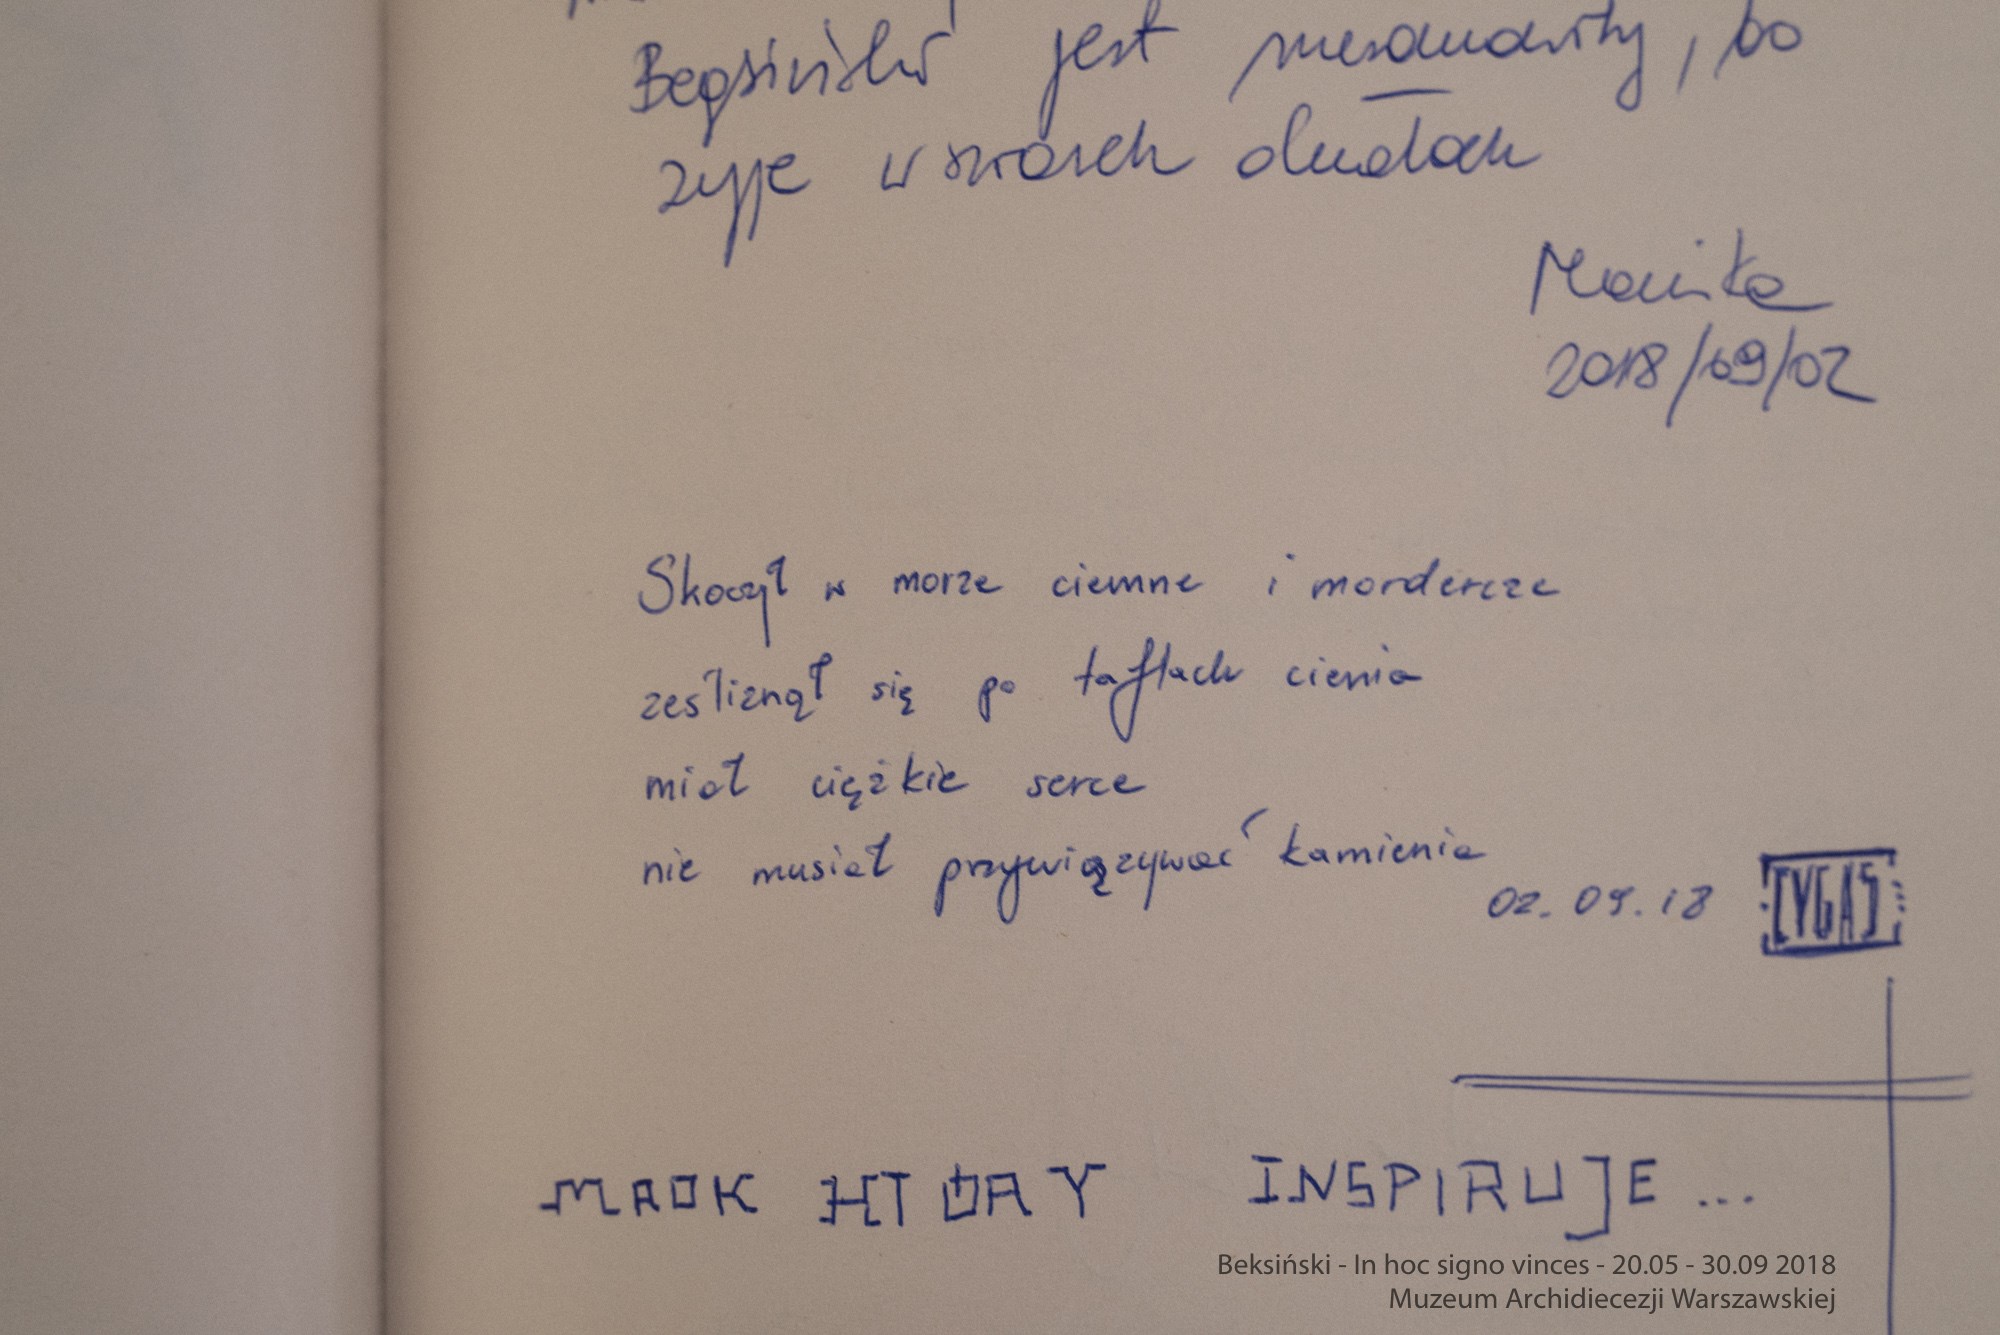 Beqsiński jest niesamowity, bo
żyje w swoich dziełach
Monika
2018/09/02
Skoczył w morze ciemne i mordercze
ześliznął się po taflach cienia
miał ciężkie serce
nie musiał przywiązywać kamienia
02.09.18 CYGAS
MROK KTÓRY INSPIRUJE...
Beksiński - In hoc signo vinces - 20.05 - 30.09 2018
Muzeum Archidiecezji Warszawskiej